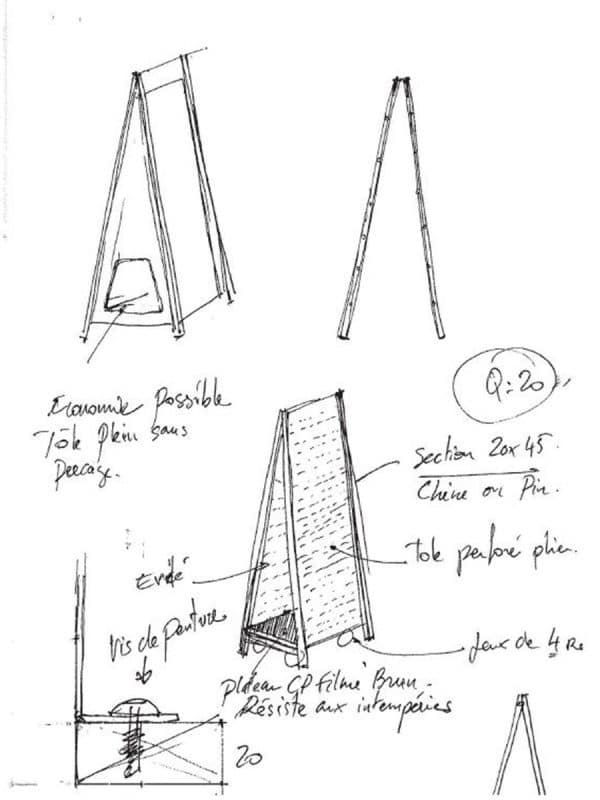 Economie possible
Tôle plein sans
percage.
Q: 20
Section 20x45.
Chêne ou Pin.
Tole perforé plier.
Evidé
Vis de penture
Jeux de 4 Re
plateau CP Filmé Brun.
Résiste aux intempéries
20